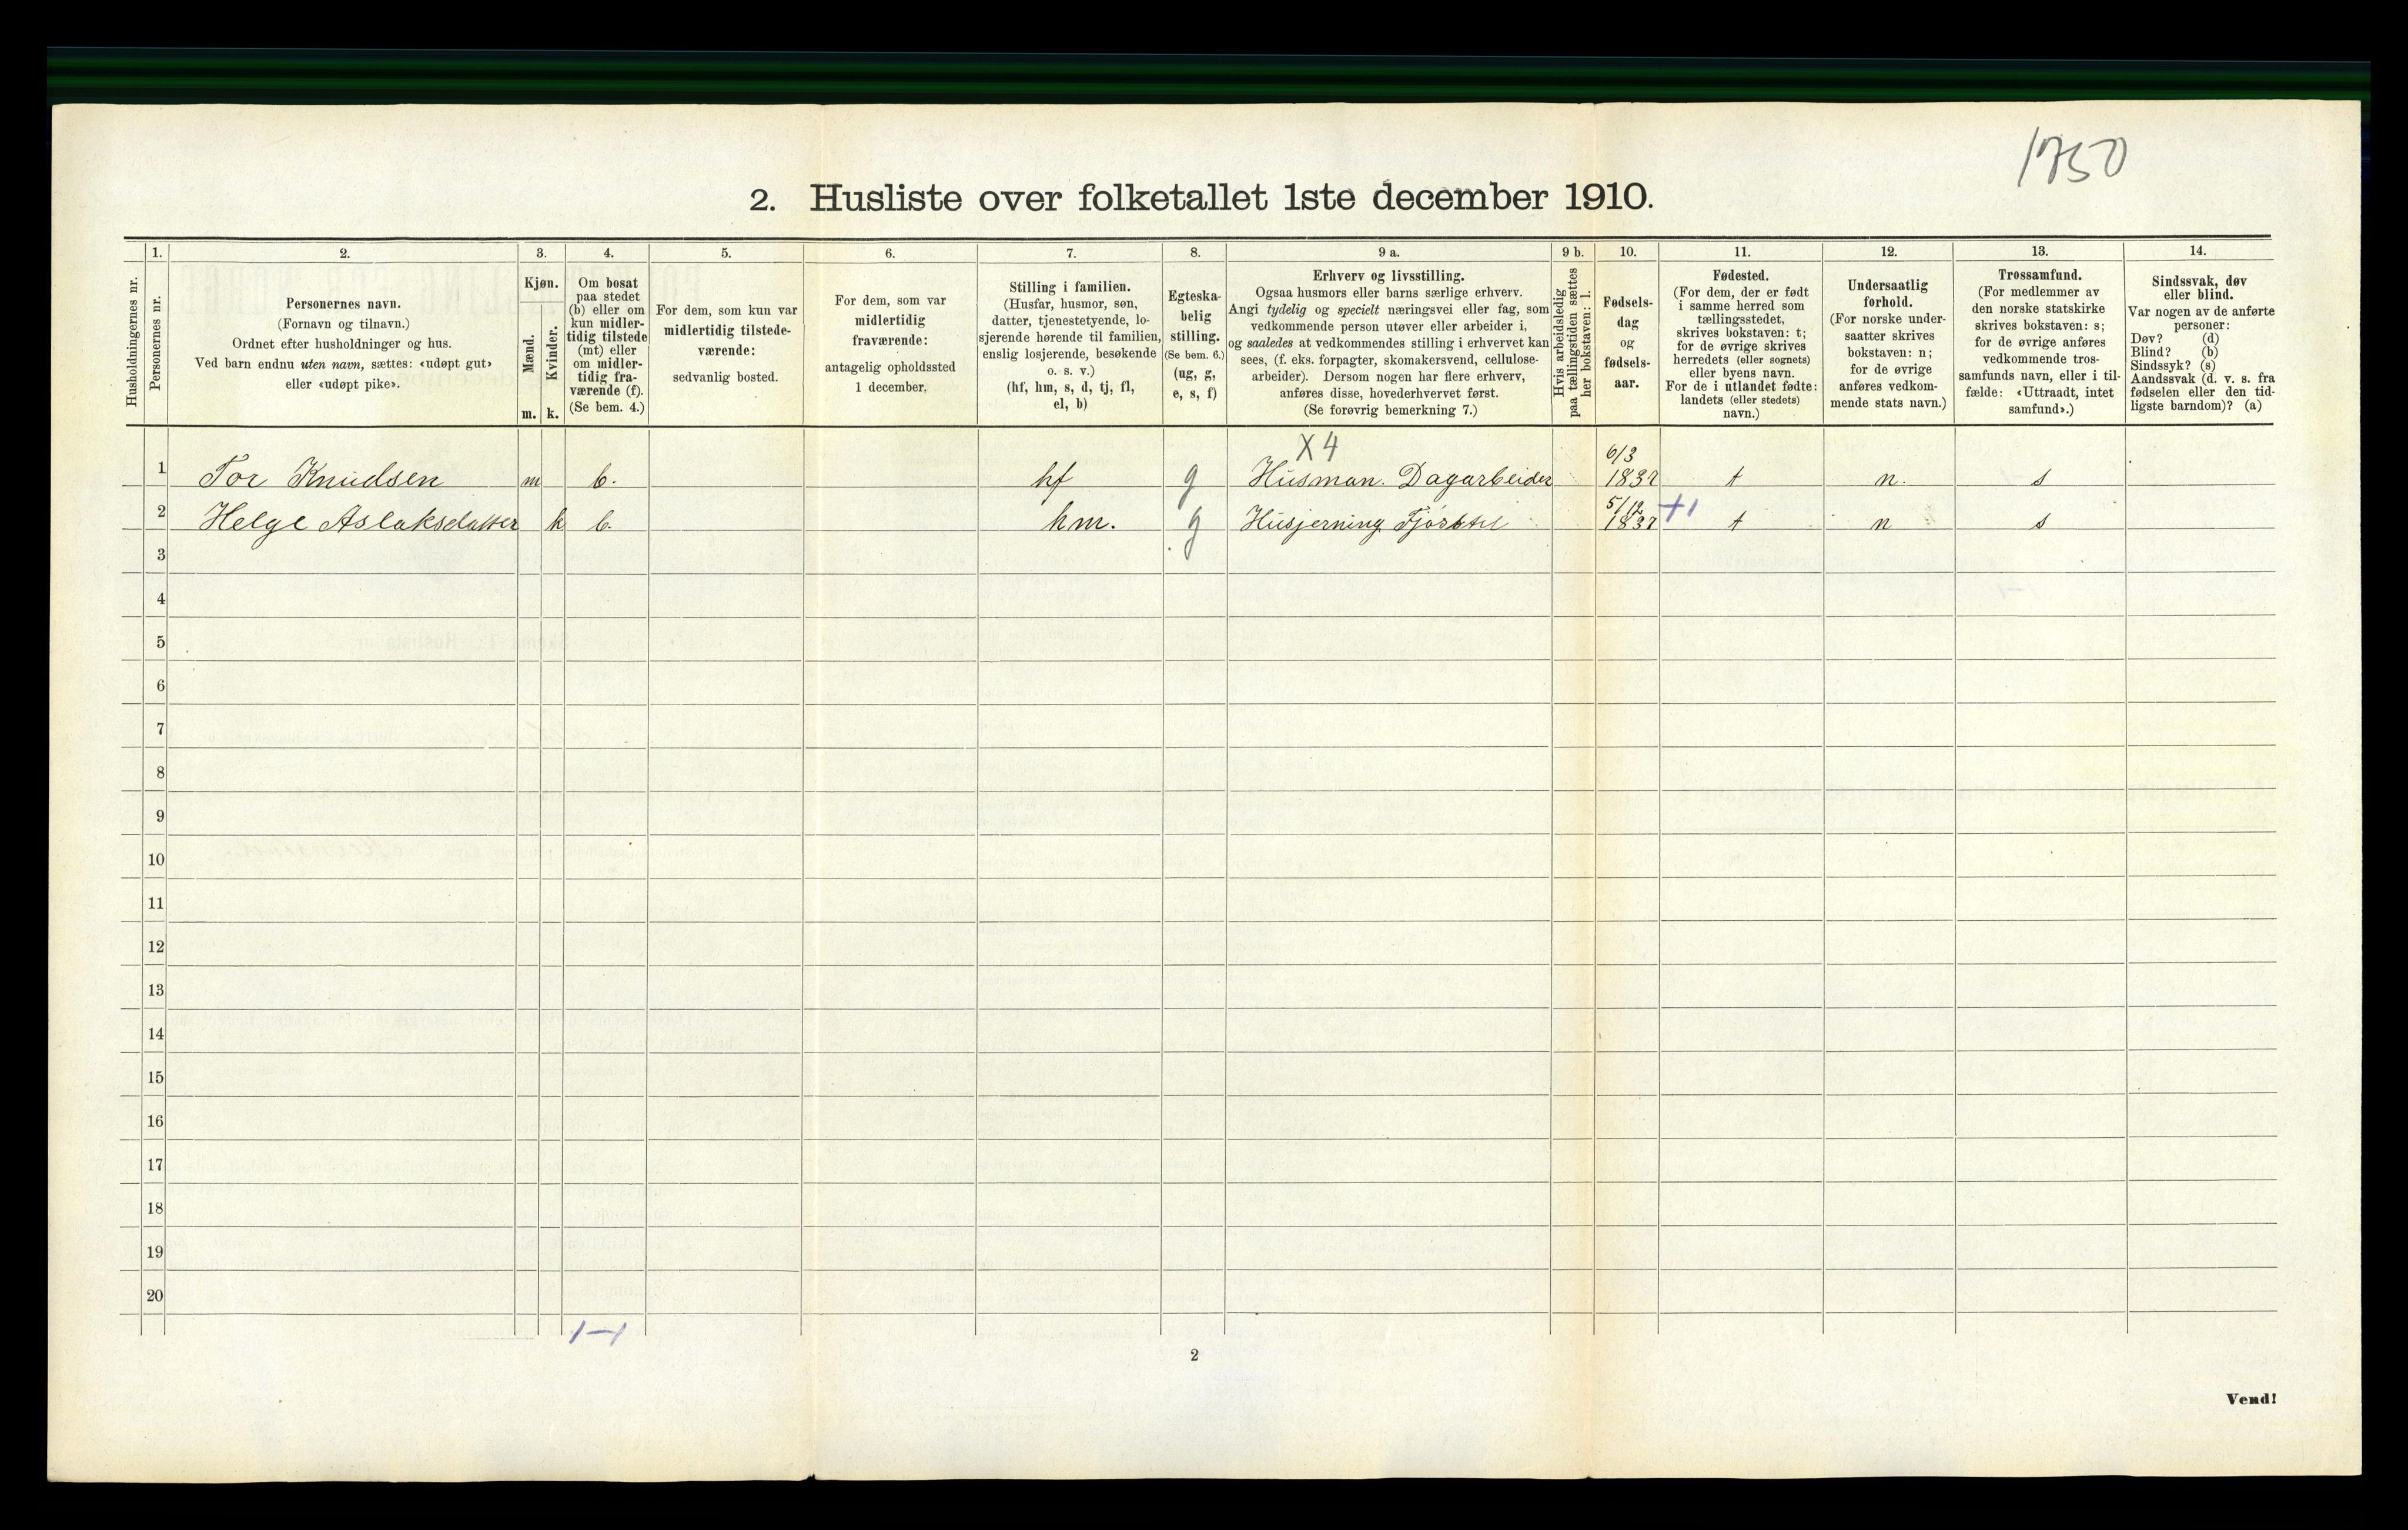 1750
2. Husliste over folketallet 1ste december 1910.
Husholdningernes nr.
1.
Personernes nr.
2.
Personernes navn.
(Fornavn og tilnavn.)
Ordnet efter husholdninger og hus.
Ved barn endnu uten navn, sættes: «udøpt gut»
eller «udøpt pike».
3.
Kjøn.
Mænd.
m.
Kvinder.
k.
4.
Om bosat
paa stedet
(b) eller om
kun midler-
tidig tilstede
(mt) eller
om midler-
tidig fra-
værende (f).
(Se bem. 4.)
5.
For dem, som kun var
midlertidig tilstede-
værende:
sedvanlig bosted.
6.
For dem, som var
midlertidig
fraværende:
antagelig opholdssted
1 december.
7.
Stilling i familien.
(Husfar, husmor, søn,
datter, tjenestetyende, lo-
sjerende hørende til familien,
enslig losjerende, besøkende
o. s. v.)
(hf, hm, s, d, tj, fl,
el, b)
8.
Egteska-
belig
stilling.
(Se bem. 6.)
(ug, g,
e, s, f)
9 a.
Erhverv og livsstilling.
Ogsaa husmors eller barns særlige erhverv.
Angi tydelig og specielt næringsvei eller fag, som
vedkommende person utøver eller arbeider i,
og saaledes at vedkommendes stilling i erhvervet kan
sees, (f. eks. forpagter, skomakersvend, cellulose-
arbeider). Dersom nogen har flere erhverv,
anføres disse, hovederhvervet først.
(Se forøvrig bemerkning 7.)
9 b.
Hvis arbeidsledig
paa tællingstiden sættes
her bokstaven: l.
10.
Fødsels-
dag
og
fødsels-
aar.
11.
Fødested.
(For dem, der er født
i samme herred som
tællingsstedet,
skrives bokstaven: t;
for de øvrige skrives
herredets (eller sognets)
eller byens navn.
For de i utlandet fødte:
landets (eller stedets)
navn.)
12.
Undersaatlig
forhold.
(For norske under-
saatter skrives
bokstaven: n;
for de øvrige
anføres vedkom-
mende stats navn.)
13.
Trossamfund.
(For medlemmer av
den norske statskirke
skrives bokstaven: s;
for de øvrige anføres
vedkommende tros-
samfunds navn, eller i til-
fælde: «Uttraadt, intet
samfund».)
14.
Sindssvak, døv
eller blind.
Var nogen av de anførte
personer:
Døv? (d)
Blind? (b)
Sindssyk? (s)
Aandssvak (d. v. s. fra
fødselen eller den tid-
ligste barndom)? (a)
X 4
6/3
1 Tor Knudsen m b. hf g Husman. Dagarbeider t n. s
5/12 +1
2 Helge Aslaksdatter k b. hm. g Husjerning 1837 t n s
3
4
5
6
7
8
9
10
11
12
13
14
15
16
17
18
19
20
1-1
2
Vend!